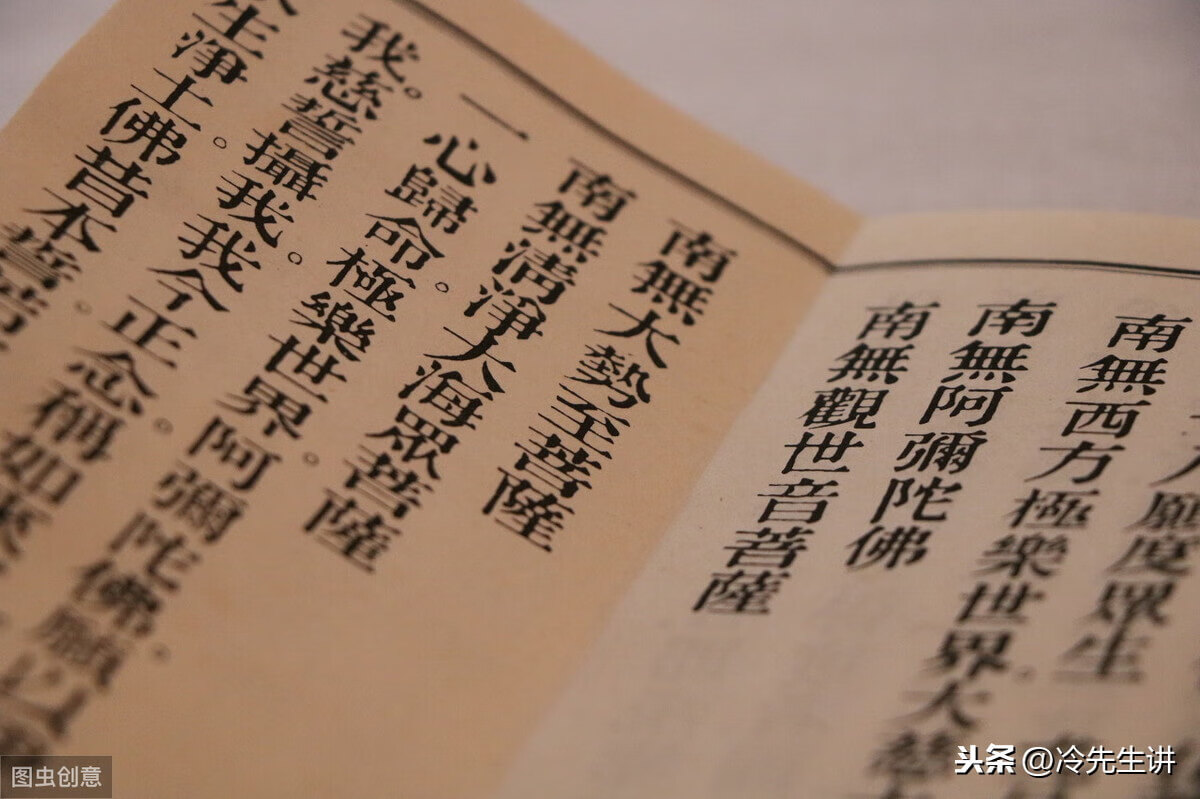 願度眾生
南無西方極樂世界大慈
南無阿彌陀佛
南無觀世音菩薩
南無大勢至菩薩
南無清淨大海眾菩薩
一心歸命。極樂世界。阿彌陀佛。願以
我。慈誓攝我。我今正念。稱如來
生淨土。佛昔本誓。若
图虫创意
头条@冷先生讲